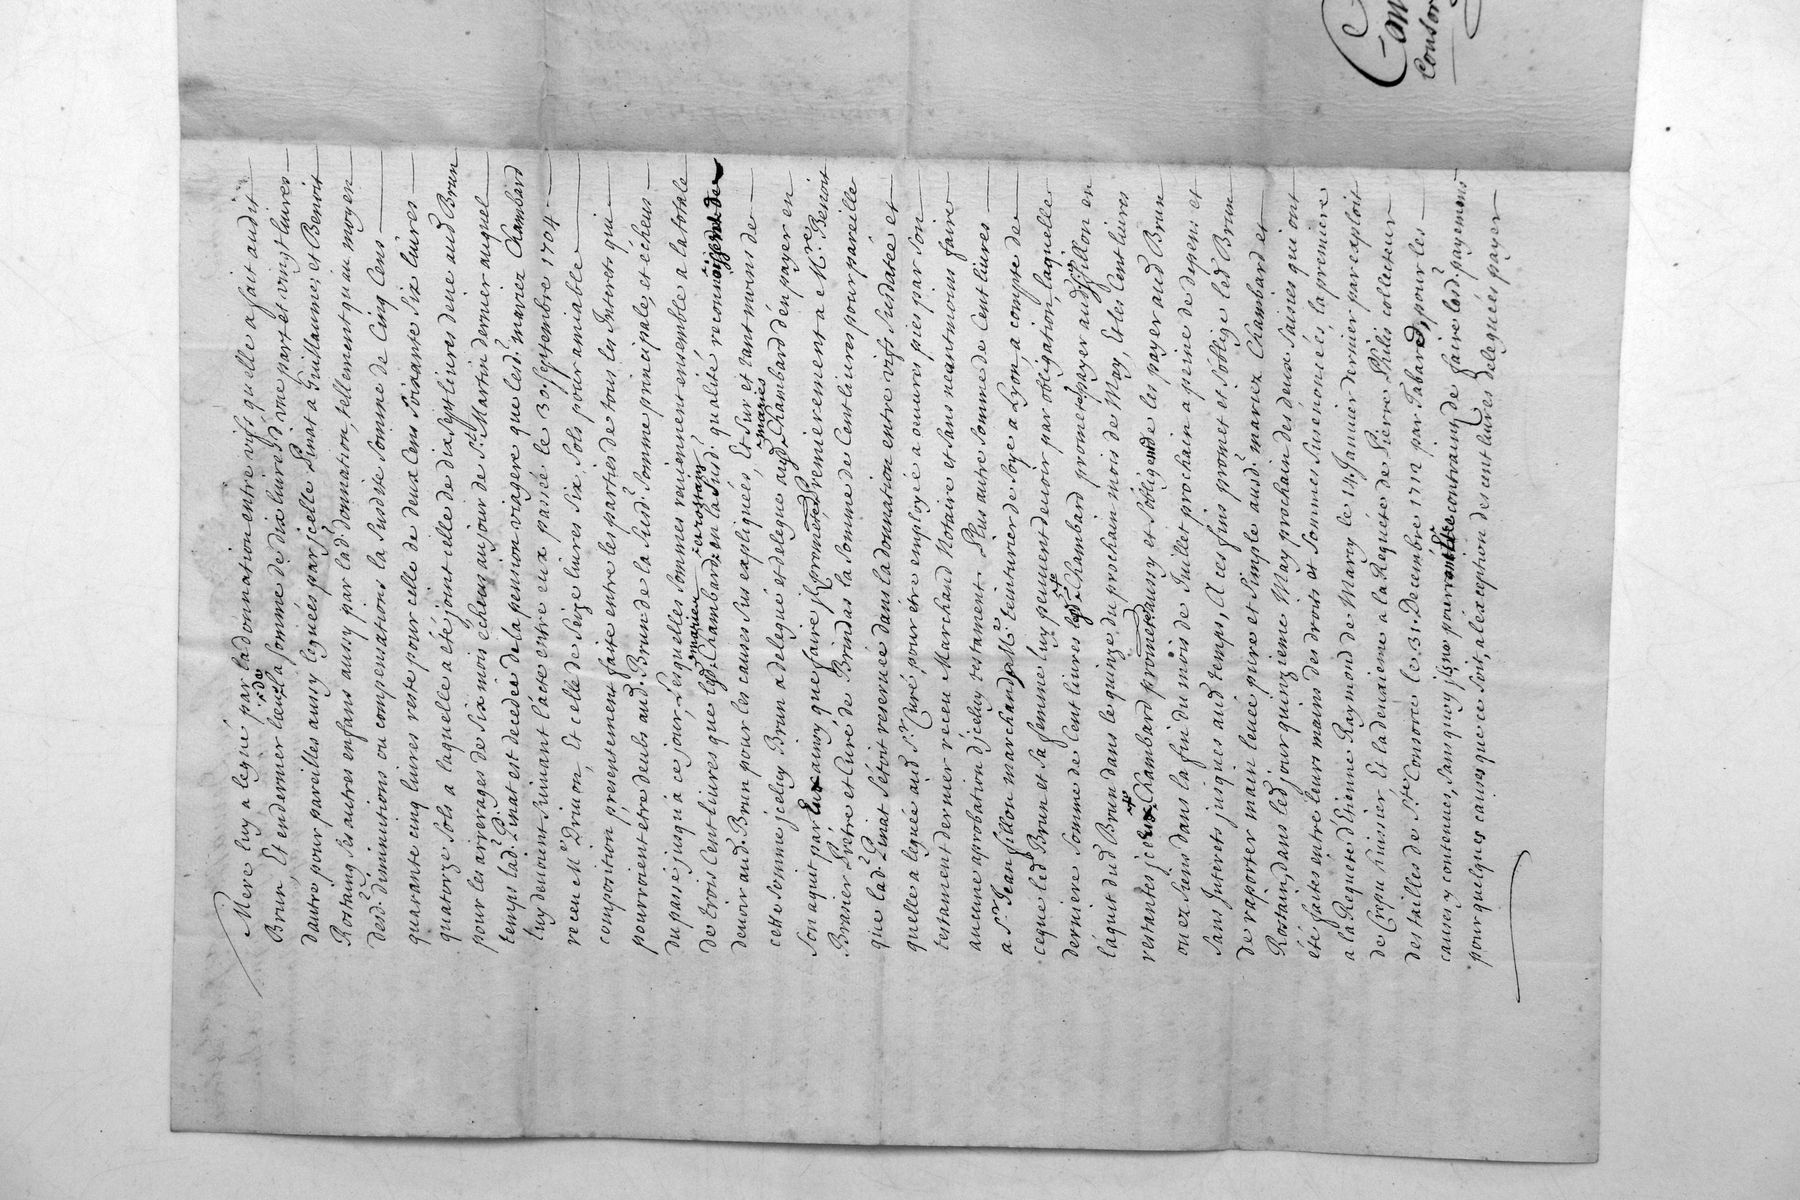 Mere luy a legué par lad. donnation entre vifs qu'elle a fait audit
Brun, Et en dernier lieu de la somme de dix livres d'une part et vingt livres
dautre pour pareilles aussy leguées par jcelle Pinat a Guillaume, et Benoit
Rostaing ses autres enfans aussy par lad. donnation, tellement qu'au moyen
desd. diminutions ou compensations la susdite somme de Cinq Cens
quarante cinq livres reste pour celle de deux Cens soixante six livres
quatorze sols a laquelle a été joint ille de dix sept livres deue aud Brun
pour les arrerages de six mois echeus au jour de St Martin dernier auquel
temps lad. Pinat est decedée de la pension viagere que lesd. mariez Chambard
luy devoient suivant l'acte entre eux passé le 30. septembre 1704
receu Me Drivon, Et celle de Seize livres six sols pour amiable
composition présentement faite entre les parties de tous les Interets qui
pourroient etre deubs aud. Brun de la susd. somme principale, et echeus
du passé jusqu'à ce jour, Lesquelles sommes reviennent ensemble a la totale
de trois Cent livres que lesd. mariez Chambard et Rostaing en la susd. qualité reconnoissent de
devoir aud. Brun pour les causes sus expliquées, Et sur et tant moins de
cette somme jceluy Brun a delegué et delegue ausd. mariés Chambard d'en payer en
son aquit par ainsy que faire jls promettent Premierement a Mre Benoit
Branier Prêtre et Curé de Brindas la somme de Cent livres pour pareille
que lad. Pinat s'étoit reservée dans la donnation entre vifs susdatée et
qu'elle a leguée aud Sr Curé, pour être employé a oeuvres pies par son
testament dernier receu Marchand Notaire et sans neantmoins faire
aucune aprobation d'jceluy testament. Plus autre somme de Cent livres
a Sr Jean fillon marchand Me teinturier de soye a Lyon, a compte de
ceque led. Brun et sa femme luy peuvent devoir par obligation, laquelle
derniere somme de Cent livres led. Chambard promet payer aud. Sr fillon en
l'aquit dud Brun dans le quinze du prochain mois de May, Et les Cent livres
restantes jceux Chambard promet aussy et s'oblige de les payer aud Brun
ou ez siens dans la fin du mois de Juillet prochain a peine de depens et
sans Interets jusques aud temps, A ces fins promet et s'oblige led Brun
de raporter main levée pure et simple ausd. mariez Chambard et
Rostain, dans led. jour quinzieme May prochain des deux saisies qui ont
été faites entre leurs mains des droits et sommes susenoncées la premiere
a la Requête d'Etienne Raymond de Marcy le 14. Janvier dernier par exploit
de Crépu huissier Et la deuxieme a la Requête de Pierre Philis collecteur
des tailles de Ste Consorce le 31. Decembre 1712 par Tabard, pour les
causes y contenues, sans quoy jls ne pourront être contraints de faire lesd. payemens
pour quelques causes que ce soit, a l'exception des cent livres deleguées payer